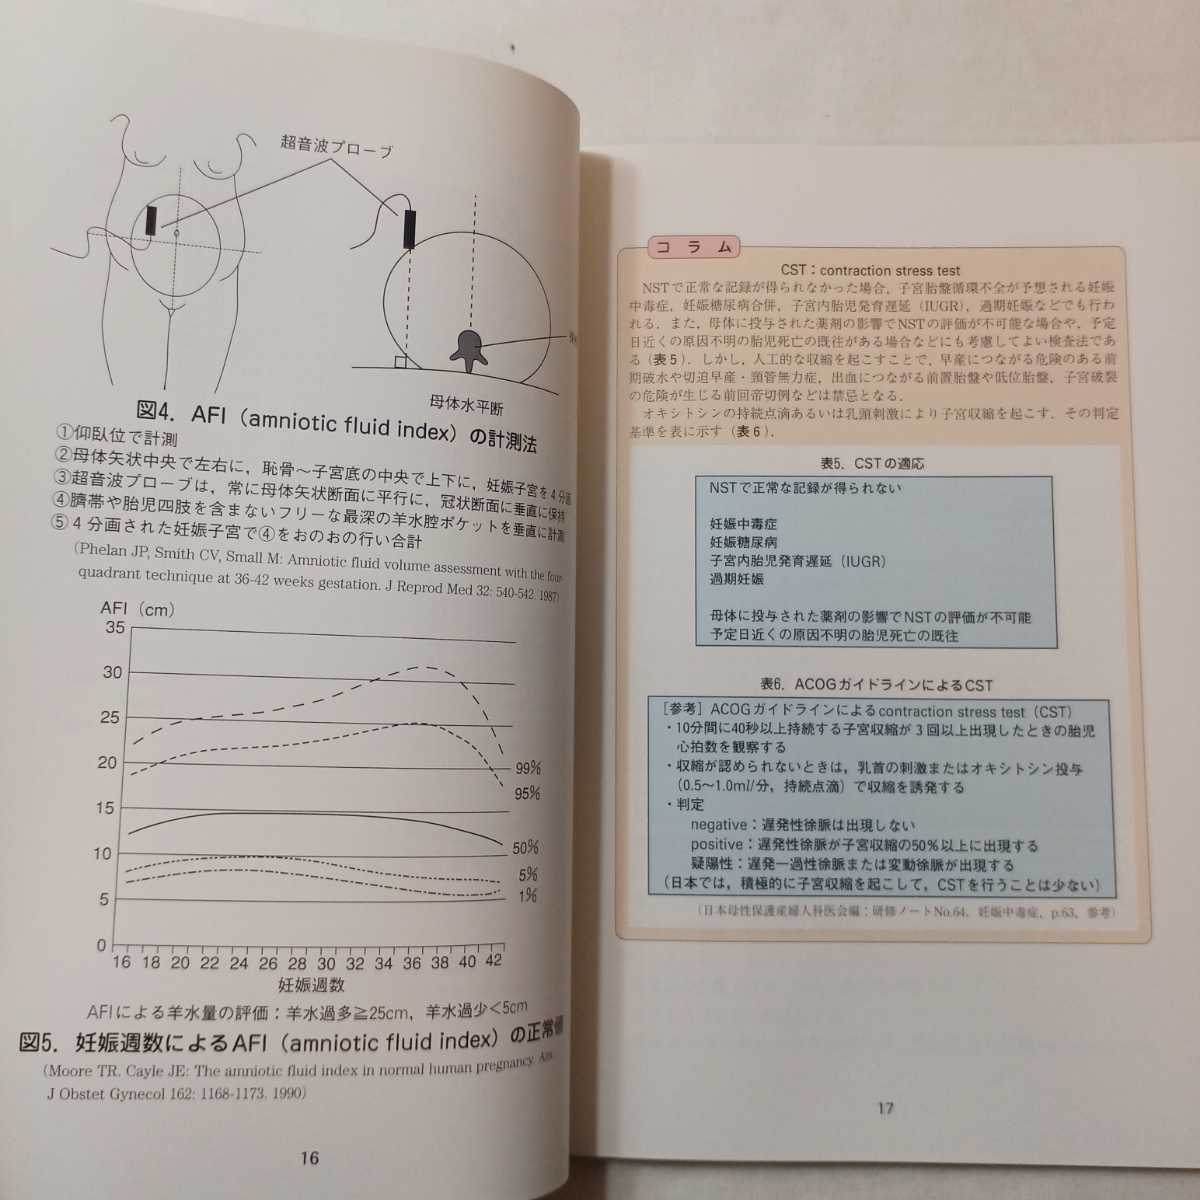 超音波プローブ
母体水平断
図4. AFI（amniotic fluid index）の計測法
①仰臥位で計測
②母体矢状中央で左右に，恥骨〜子宮底の中央で上下に，妊娠子宮を4分画
③超音波プローブは，常に母体矢状断面に平行に，冠状断面に垂直に保持
④臍帯や胎児四肢を含まないフリーな最深の羊水腔ポケットを垂直に計測
⑤4分画された妊娠子宮で④をおのおの行い合計
（Phelan JP, Smith CV, Small M: Amniotic fluid volume assessment with the four-
quadrant technique at 36-42 weeks gestation. J Reprod Med 32: 540-542. 1987）
AFI（cm）
35
30
25
20
15
10
5
0
99%
95%
50%
5%
1%
16 18 20 22 24 26 28 30 32 34 36 38 40 42
妊娠週数
AFIによる羊水量の評価：羊水過多≧25cm，羊水過少＜5cm
図5. 妊娠週数によるAFI（amniotic fluid index）の正常値
（Moore TR. Cayle JE: The amniotic fluid index in normal human pregnancy. Am
J Obstet Gynecol 162: 1168-1173. 1990）
16
コラム
CST：contraction stress test
NSTで正常な記録が得られなかった場合，子宮胎盤循環不全が予想される妊娠
中毒症，妊娠糖尿病合併，子宮内胎児発育遅延（IUGR），過期妊娠などでも行わ
れる．また，母体に投与された薬剤の影響でNSTの評価が不可能な場合や，予定
日近くの原因不明の胎児死亡の既往がある場合などにも考慮してよい検査法であ
る（表5）．しかし，人工的な収縮を起こすことで，早産につながる危険のある前
期破水や切迫早産・頸管無力症，出血につながる前置胎盤や低位胎盤，子宮破裂
の危険が生じる前回帝切例などは禁忌となる．
オキシトシンの持続点滴あるいは乳頭刺激により子宮収縮を起こす．その判定
基準を表に示す（表6）．
表5. CSTの適応
NSTで正常な記録が得られない
妊娠中毒症
妊娠糖尿病
子宮内胎児発育遅延（IUGR）
過期妊娠
母体に投与された薬剤の影響でNSTの評価が不可能
予定日近くの原因不明の胎児死亡の既往
表6. ACOGガイドラインによるCST
［参考］ACOGガイドラインによるcontraction stress test（CST）
・10分間に40秒以上持続する子宮収縮が3回以上出現したときの胎児
心拍数を観察する
・収縮が認められないときは，乳首の刺激またはオキシトシン投与
（0.5〜1.0ml/分，持続点滴）で収縮を誘発する
・判定
negative：遅発性徐脈は出現しない
positive：遅発性徐脈が子宮収縮の50%以上に出現する
疑陽性：遅発一過性徐脈または変動徐脈が出現する
（日本では，積極的に子宮収縮を起こして，CSTを行うことは少ない）
（日本母性保護産婦人科医会編：研修ノートNo.64．妊娠中毒症，p.63，参考）
17